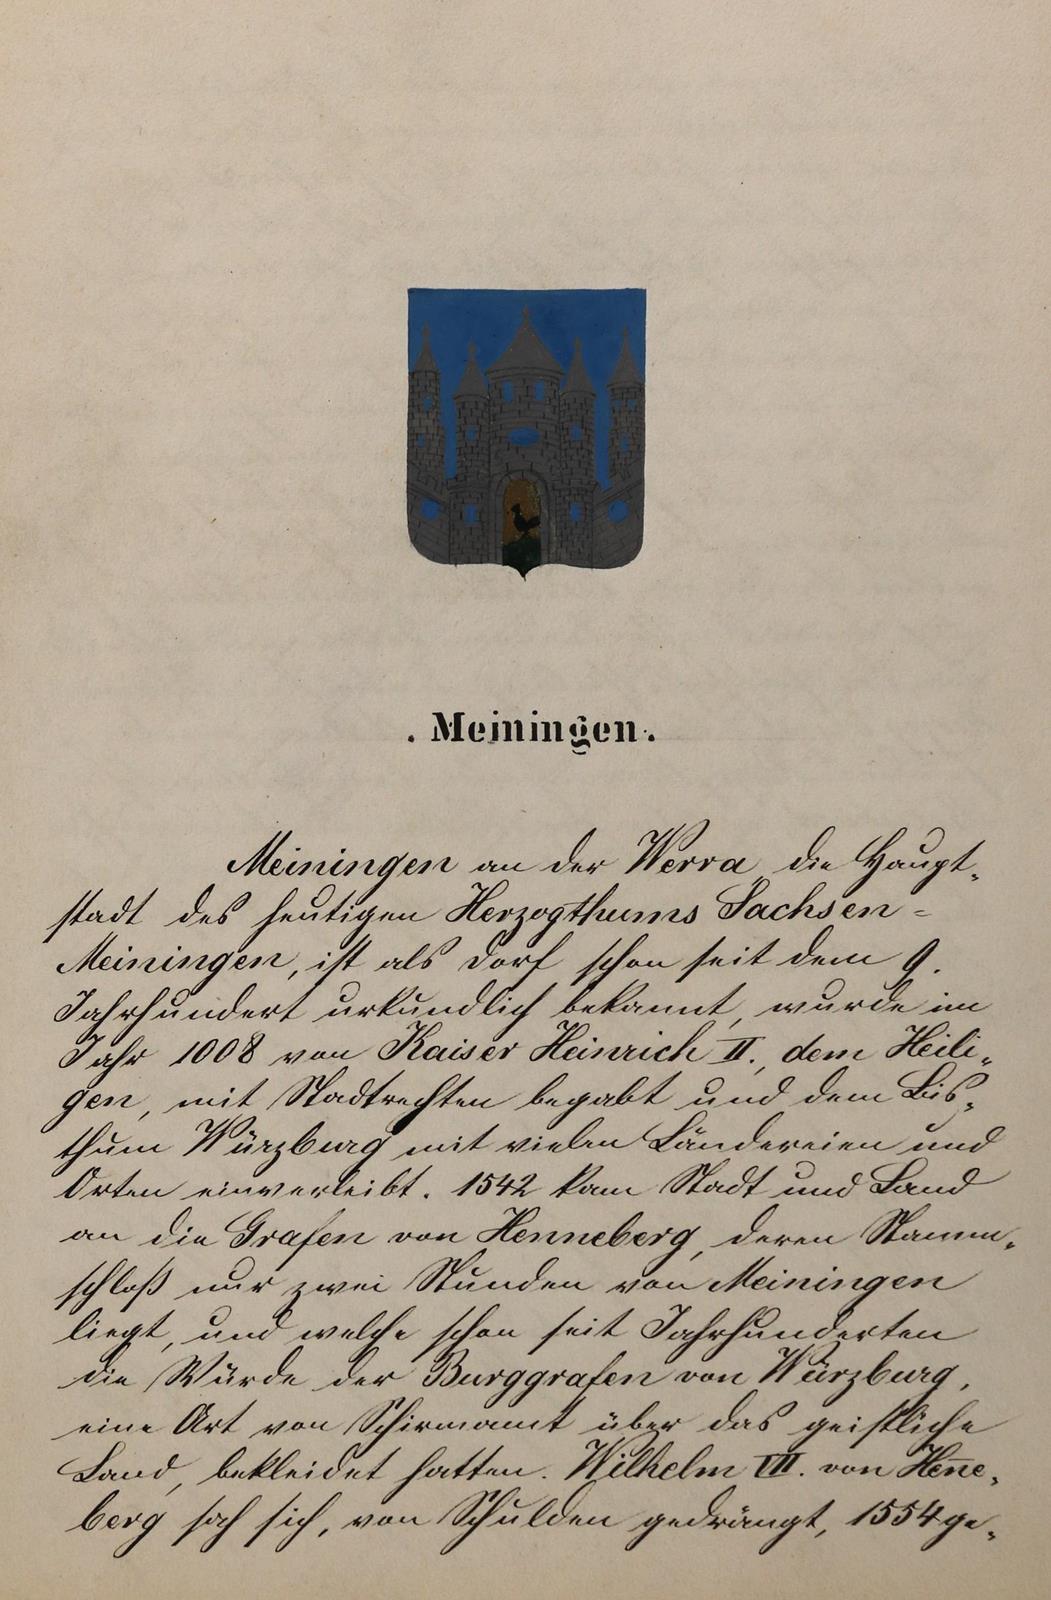 . Meiningen .
Meiningen an der Werra die Haupt-
stadt des heutigen Herzogthums Sachsen-
Meiningen, ist als Dorf schon seit dem 9.
Jahrhundert urkundlich bekannt, wurde im
Jahr 1008 von Kaiser Heinrich II., dem Heili-
gen, mit Stadtrechten begabt und dem Bis-
thum Würzburg mit vielen Ländereien und
Orten einverleibt. 1542 kam Stadt und Land
an die Grafen von Henneberg, deren Stamm-
schloß nur zwei Stunden von Meiningen
liegt, und welche schon seit Jahrhunderten
die Würde der Burggrafen von Würzburg,
eine Art von Schirmamt über das geistliche
Land, bekleidet hatten. Wilhelm VII. von Hen̅e-
berg sah sich, von Schulden gedrängt, 1554 ge-